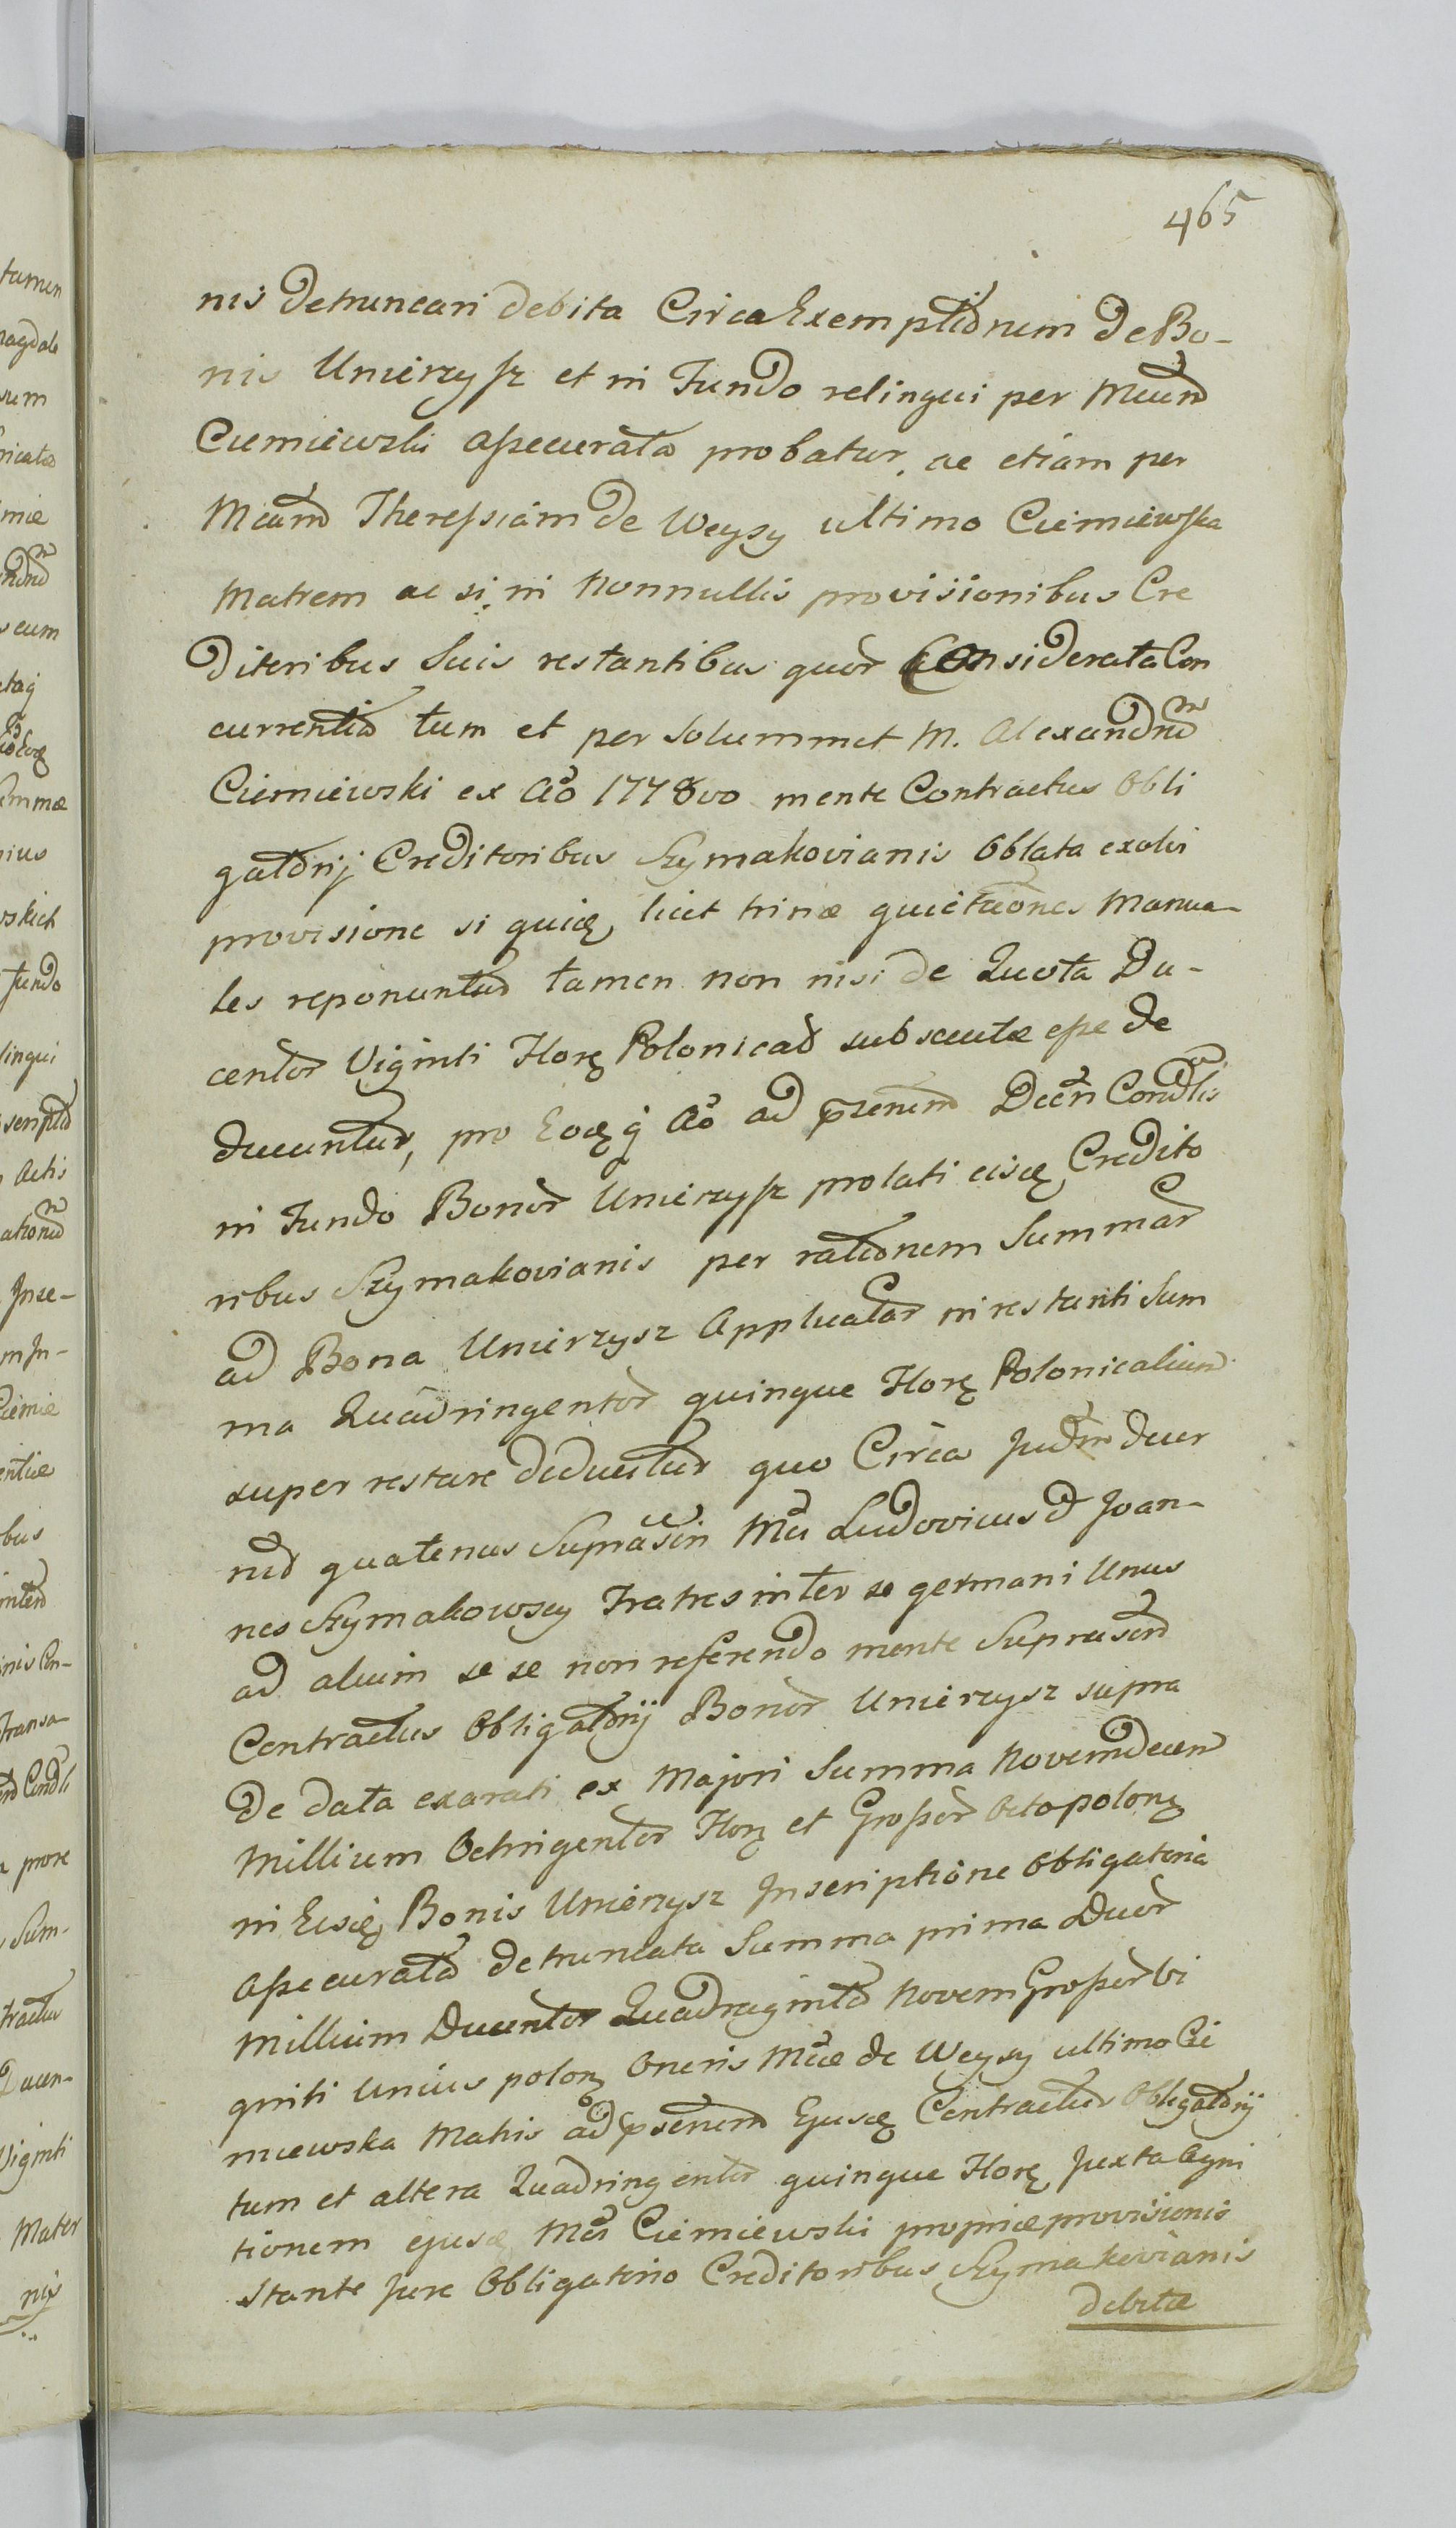 465
nis detruncari debita Circa Exemptionem de Bo-
nis Umierzysz et in Fundo relinqui per Mcum
Ciemiewski assecurata probatur, ac etiam per
Mcam Theressiam de Weysy ultimo Ciemiewska
Matrem ac si in nonnullis provisionibus Cre
ditoribus Suis restantibus quor Considerata Con
currentia tum et per Solummet M. Alexandrum
Ciemiewski ex Ao 1778vo mente Contractus Obli
gatorij Creditoribus Szymakovianis Oblata exolvi
provisione si quidę licet trinæ quietationes Manua-
les reponuntur tamen non nisi de Quota Du-
centor Viginti Florę Polonicað subsecutæ esse de
ducuntur, pro Eodę q Ao ad præsentem Decrti Condlis
in Fundo Bonor Umierzysz prolati eisdę Credito
ribus Szymakovianis per rationem Summar
ad Bona Umierzysz Applicatar in restanti Sum
ma Quadringentor quinque Florę Polonicalium
super restare deducitur quo Circa Judm decer
nit quatenus Suprascti Mci Ludovicus & Joan-
nes Szymakowscy Fratres inter se germani Unus
ad alium se se non referendo mente Suprascti
Contractus Obligatorij Bonor Umierzysz supra
de data exarati ex Majori Summa Novemdecem
Millium Octingentor Florę et Grossor Octo polonę
in Eisdę Bonis Umierzysz Inscriptione Obligatoria
Assecurata detruncata Summa prima Duor
Millium Ducentor Quadraginta Novem Grossor Vi
ginti Unius polonę Oneris Mcæ de Weysy ultimo Cie
miewska Matris ad præsentem Ejusdę Contractus Obligatorij
tum et altera Quadringentor quinque Florę juxta Agni
tionem ejusdę Mci Ciemiewski propriæ provisionis
stante Jure Obligatorio Creditoribus Szymakovianis
debitæ